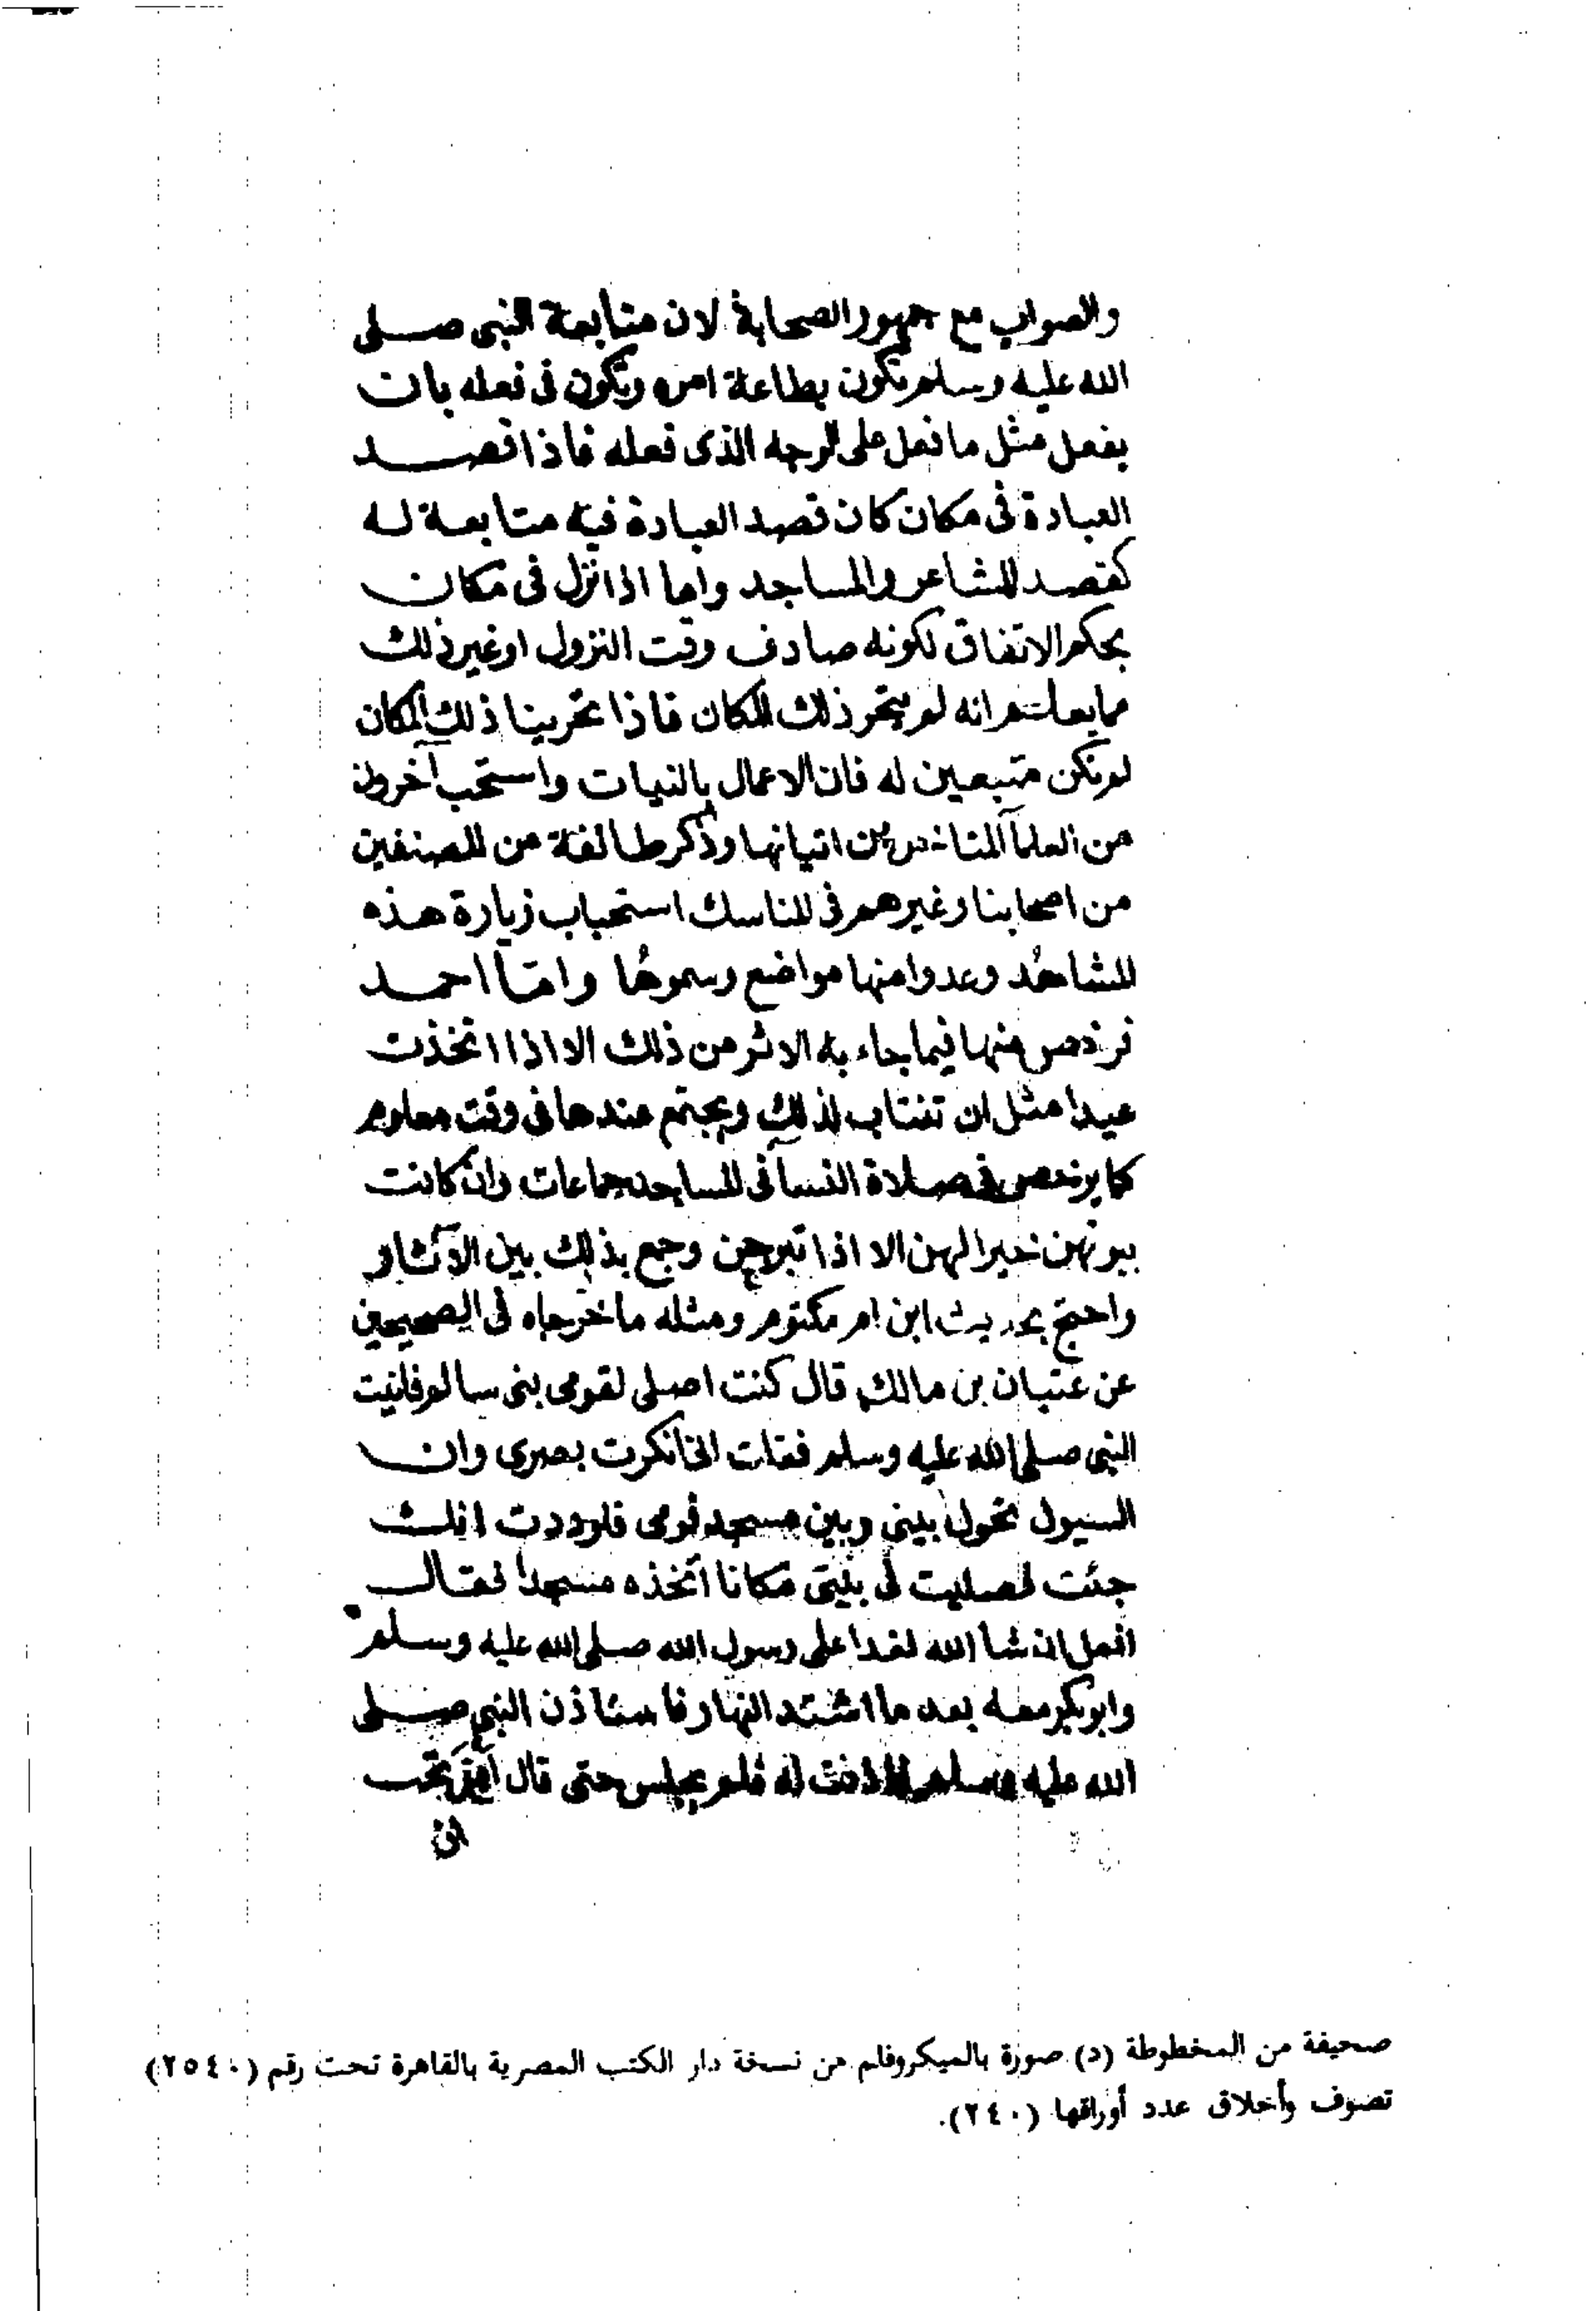 والصواب مع جمهور الصحابة لان متابعة النبى صلى
الله عليه وسلم تكون بطاعة امره وتكون فى فعله بان
يفعل مثل ما فعل على الوجه الذى فعله فاذا قصد
العبادة فى مكان كان قصد العبادة فيه متابعة له
كقصد المشاعر والمساجد واما اذا نزل فى مكان
بحكم الاتفاق لكونه صادف وقت النزول او غير ذلك
مما يعلم انه لم يتحر ذلك المكان فاذا تحرينا ذلك المكان
لم نكن متبعين له فان الاعمال بالنيات واستحب آخرون
من العلمآ المتاخرين اتيانها وذكر طائفة من المصنفين
من اصحابنا وغيرهم فى المناسك استحباب زيارة هذه
المشاهد وعدوا منها مواضع وسموها وامّا احمد
فرخص منها فيما جاء به الاثر من ذلك الا اذا اتخذت
عيدا مثل ان تنتاب لذلك ويجتمع عندها فى وقت معلوم
كما يرخص فى صلاة النسآ فى المساجد جماعات وان كانت
بيوتهن خيرا لهن الا اذا تبرجن وجمع بذلك بين الآثار
واحتج بحديث ابن ام مكتوم ومثله ما خرجاه فى الصحيحين
عن عتبان بن مالك قال كنت اصلى لقومى بنى سالم فاتيت
النبى صلى الله عليه وسلم فقلت انى انكرت بصرى وان
السيول تحول بينى وبين مسجد قومى فلوددت انك
جئت فصليت فى بيتى مكانا اتخذه مسجدا فقال
افعل ان شا الله فغدا على رسول الله صلى الله عليه وسلم
وابو بكر معه بعد ما اشتد النهار فاستاذن النبى صلى
الله عليه وسلم فاذنت له فلم يجلس حتى قال اين تحب
ان
صحيفة من المخطوطة (د) صورة بالميكروفلم من نسخة دار الكتب المصرية بالقاهرة تحت رقم (٢٥٤٠)
تصوف وأخلاق عدد أوراقها (٢٤٠).